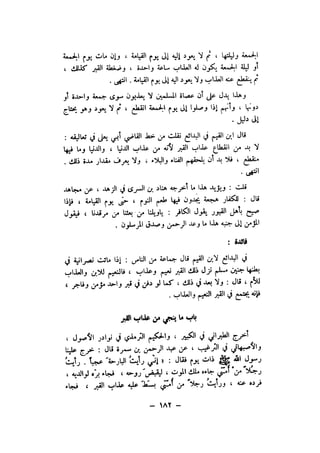 الجمعة وليلتها ، ثم لا يعود إليه إلى يوم القيامة ، وإن مات يوم الجمعة
أو ليلة الجمعة يكون له العذاب ساعة واحدة ، وضغطة القبر كذلك ،
ثم ينقطع عنه العذاب ولا يعود اليه إلى يوم القيامة . انتهى .
وهذا يدل على أن عصاة المسلمين لا يعذبون سوى جمعة واحدة أو
دونها ، وأنهم إذا وصلوا إلى يوم الجمعة انقطع ، ثم لا يعود وهو يحتاج
إلى دليل .
قال ابن القيم في البدائع نقلت من خط القاضي أبي يعلى في تعاليقه :
لا بد من انقطاع عذاب القبر لأنه من عذاب الدنيا ، والدنيا وما فيها
منقطع ، فلا بد أن يلحقهم الفناء والبلاء ، ولا يعرف مقدار مدة ذلك .
انتهى .
قلت : ويؤيد هذا ما أخرجه هناد بن السرى في الزهد ، عن مجاهد
قال : للكفار هجعة يجدون فيها طعم النوم ، حتى يوم القيامة ، فإذا
صيح بأهل القبور يقول الكافر : ياويلنا من بعثنا من مرقدنا ، فيقول
المؤمن إلى جنبه هذا ما وعد الرحمن وصدق المرسلون .
فائدة :
في البدائع لابن القيم قال جماعة من الناس : إذا ماتت نصرانية في
بطنها جنين مسلم نزل ذلك القبر نعيم وعذاب ، فالنعيم للابن والعذاب
للأم ، قال : ولا بعد في ذلك ، كما لو دفن في قبر واحد مؤمن وفاجر ،
فإنه يجتمع في القبر النعيم والعذاب .
باب ما ينجي من عذاب القبر
أخرج الطبراني في الكبير ، والحكيم الترمذي في نوادر الأصول ،
والأصبهاني في الترغيب ، عن عبد الرحمن بن سمرة قال : خرج علينا
رسول الله ﷺ ذات يوم فقال : « إني رأيت البارحة عجبا . رأيت
رجلا من أمتي جاءه ملك الموت ، ليقبض روحه ، فجاء بره لوالديه ،
فرده عنه ، ورأيت رجلا من أمتي بسط عليه عذاب القبر ، فجاء
– ١٨٢ –